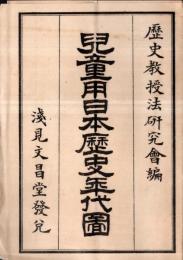 歷史教授法研究會編
兒童用日本歷史年代圖
淺見文昌堂發兌